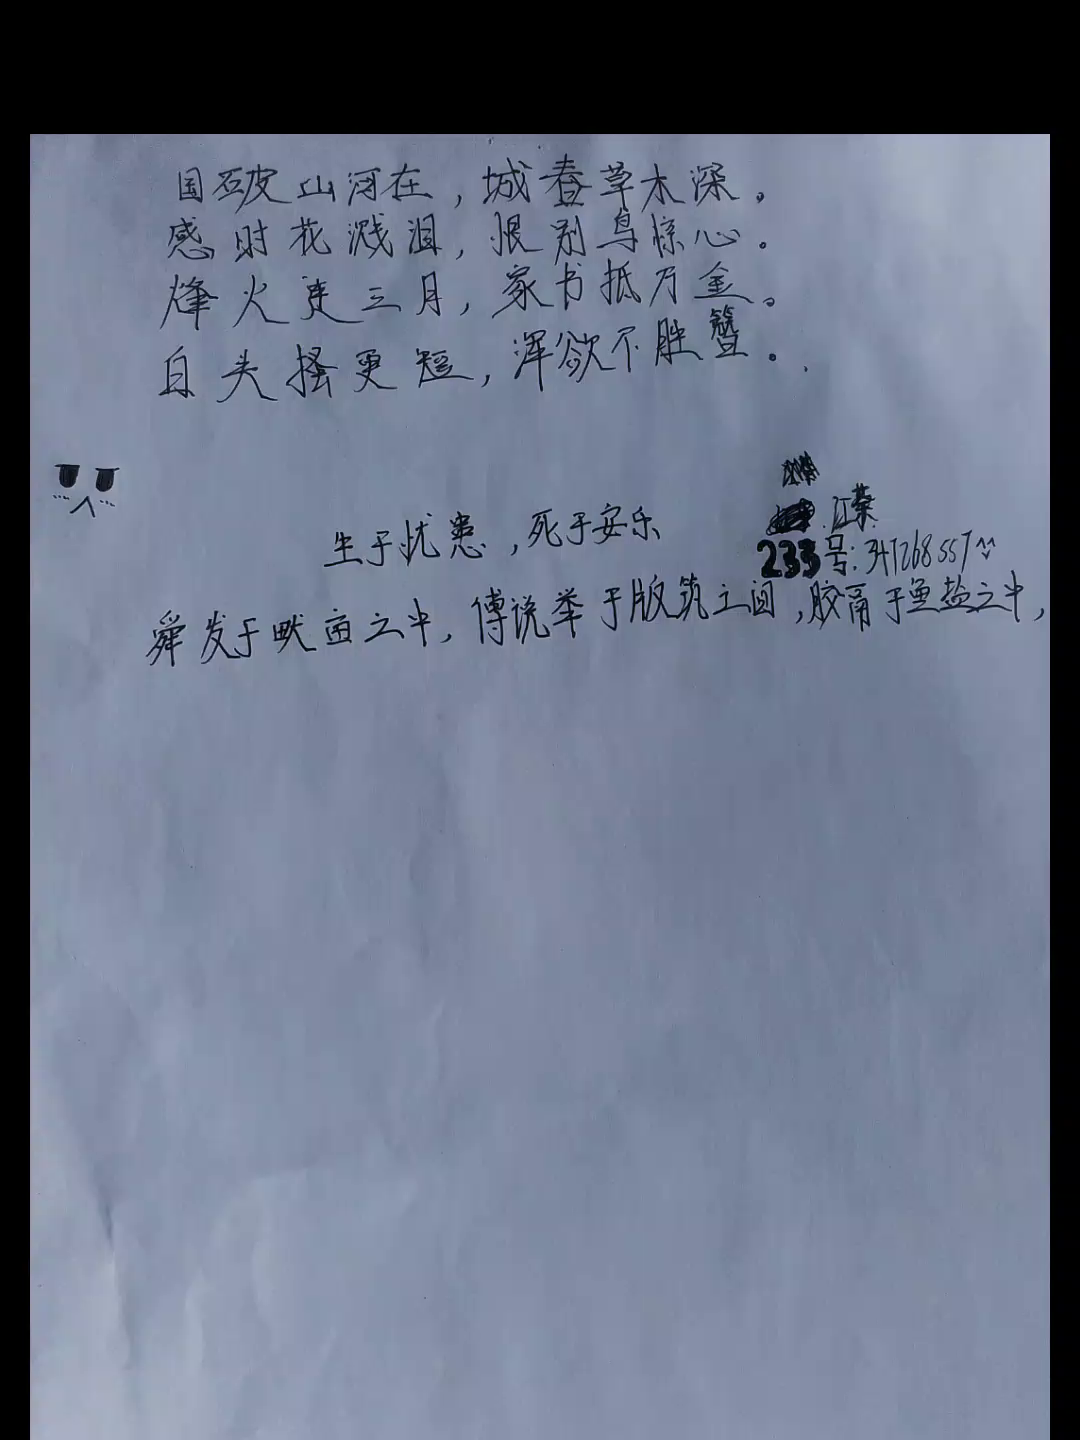 国破山河在，城春草木深。
感时花溅泪，恨别鸟惊心。
烽火连三月，家书抵万金。
白头搔更短，浑欲不胜簪。
生于忧患，死于安乐
江
233号:347268557
舜发于畎亩之中，傅说举于版筑之间，胶鬲于鱼盐之中，